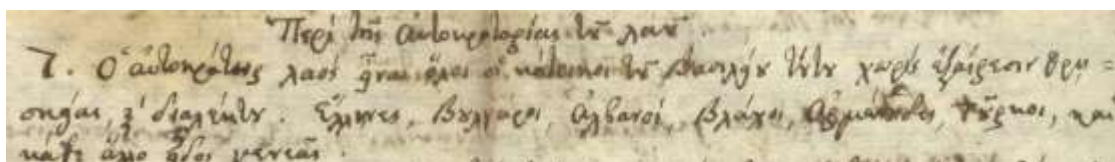 Περὶ τῆς αὐτοκρατορίας τοῦ λαοῦ
7. Ὁ αὐτοκράτωρ λαὸς εἶναι ὅλοι οἱ κάτοικοι τοῦ Βασιλείου τούτου χωρὶς ἐξαίρεσιν θρη=
σκείας, καὶ διαλέκτου. Ἕλληνες, Βούλγαροι, Ἀλβανοί, Βλάχοι, Ἀρμένηδες, Τοῦρκοι, καὶ
κάθε ἄλλο εἶδος γενεᾶς.